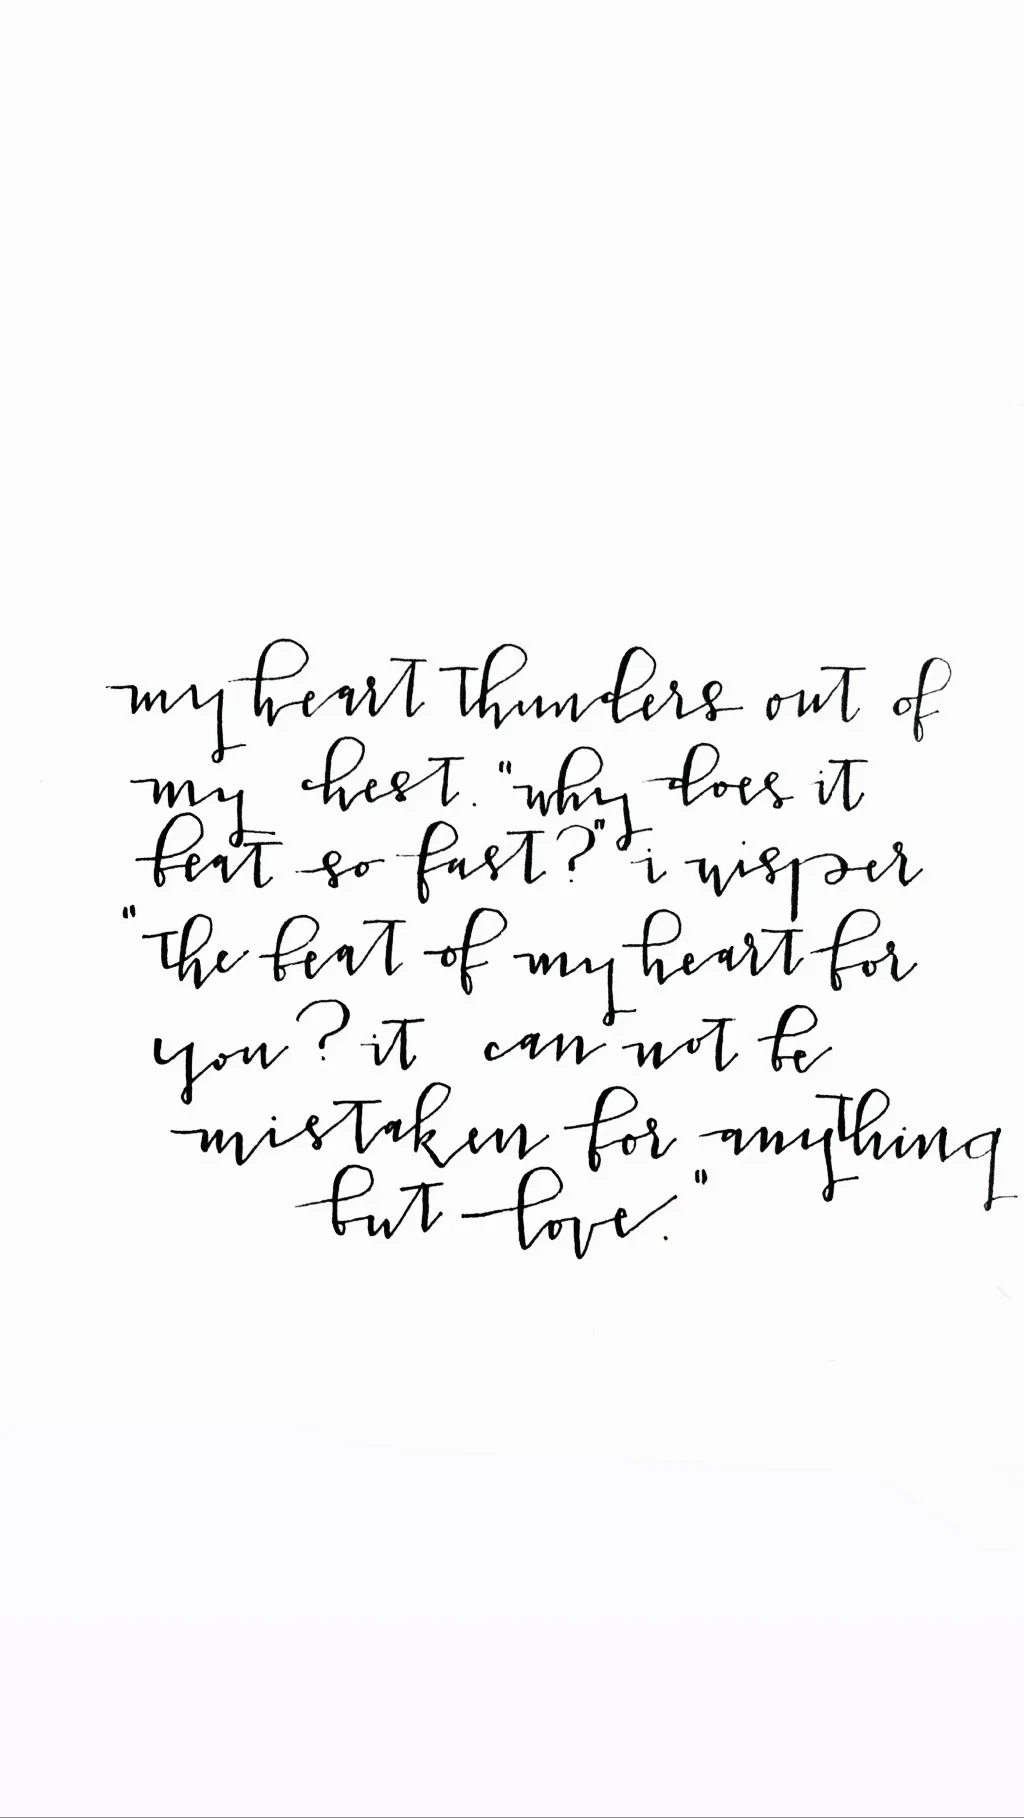 my heart thunders out of
my chest. "why does it
beat so fast?" i wisper
"the beat of my heart for
you? it can not be
mistaken for anything
but love."